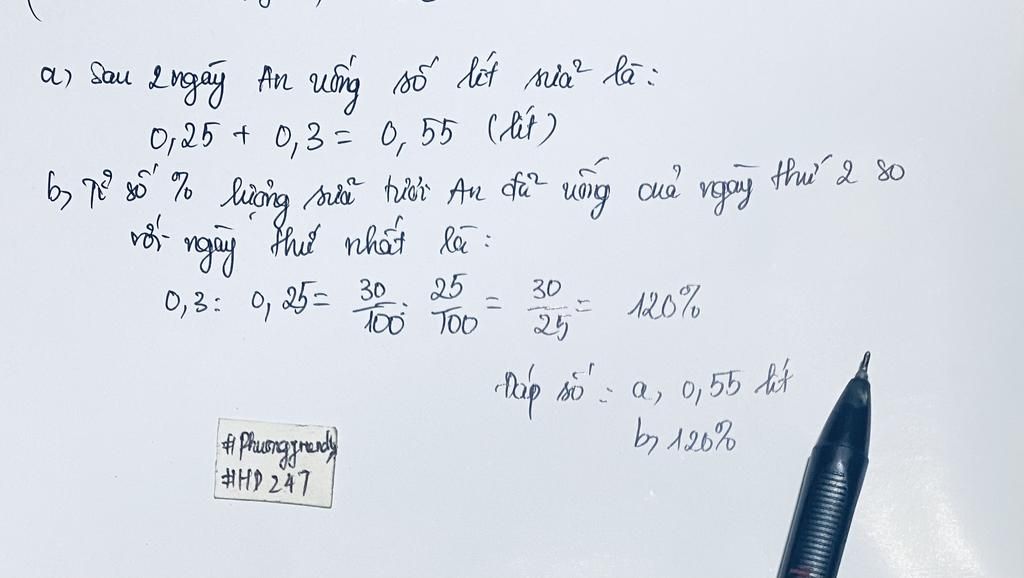 a) Sau 2 ngày An uống số lít sữa là:
0,25 + 0,3 = 0,55 (lít)
b, Tỉ số % lượng sữa tươi An đã uống của ngày thứ 2 so
với ngày thứ nhất là:
0,3 : 0,25 = 30/100 : 25/100 = 30/25 = 120%
Đáp số : a, 0,55 lít
b, 120%
#Phuonggrandy
#HD247